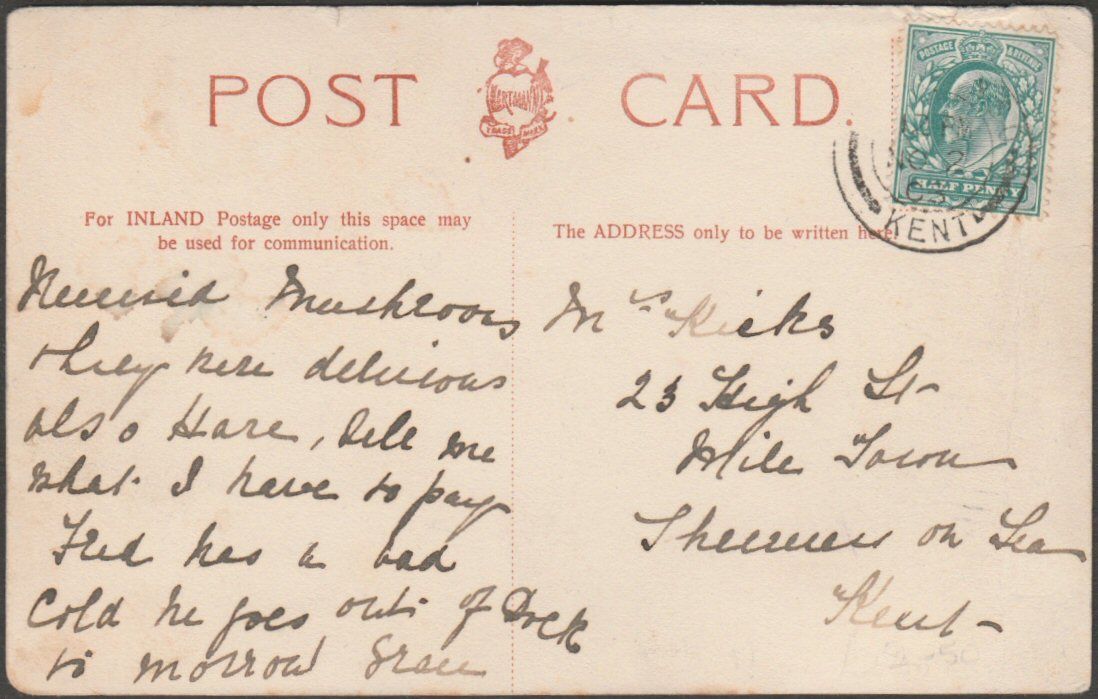 POST CARD.
HARTMANN
TRADE MARK
POSTAGE & REVENUE
HALF PENNY
KENT
For INLAND Postage only this space may
be used for communication.
The ADDRESS only to be written here.
Received Mushrooms
they were delicious
also Hare, tell me
what I have to pay
Fred has a bad
cold he goes out of Dock
to morrow Grace
Mrs Hicks
23 High St
Mile Town
Sheerness on Sea
Kent